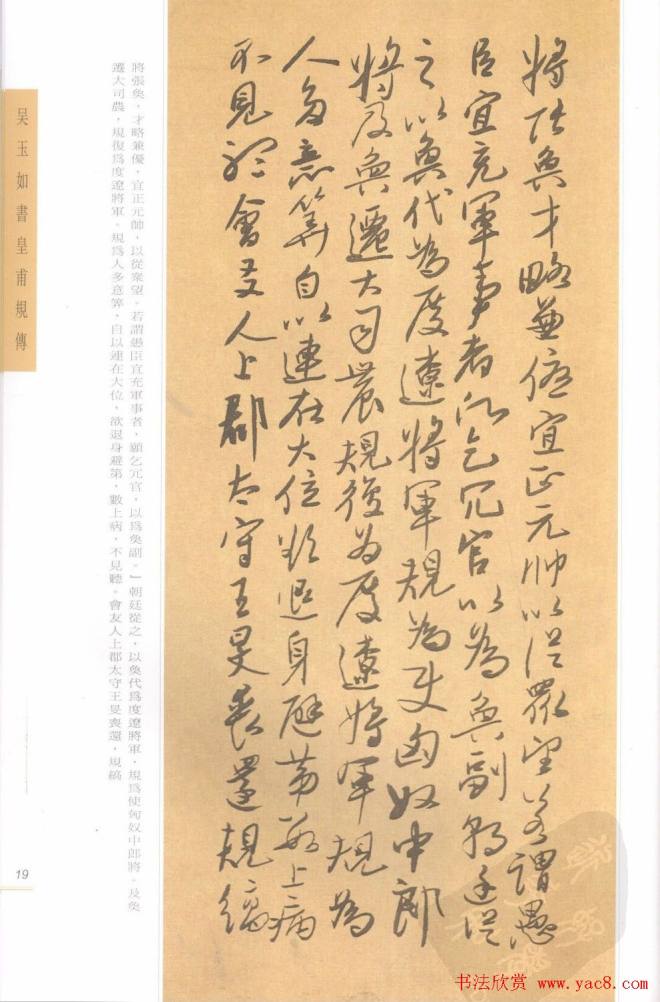 將張奐才略兼優宜正元帥以從眾望若謂愚
臣宜充軍事者願乞冗官以為奐副朝廷從
之以奐代為度遼將軍規為使匈奴中郎
將及奐遷大司農規復為度遼將軍規為
人多意筭自以連在大位欲退身避第數上病
不見聽會友人上郡太守王旻喪還規縞
將張奐，才略兼優，宜正元帥，以從衆望。若謂愚臣宜充軍事者，願乞冗官，以爲奐副。」朝廷從之，以奐代爲度遼將軍，規爲使匈奴中郎將。及奐
遷大司農，規復爲度遼將軍。規爲人多意筭，自以連在大位，欲退身避第，數上病，不見聽。會友人上郡太守王旻喪還，規縞
吴玉如書皇甫規傳
19
书法欣赏 www.yac8.com